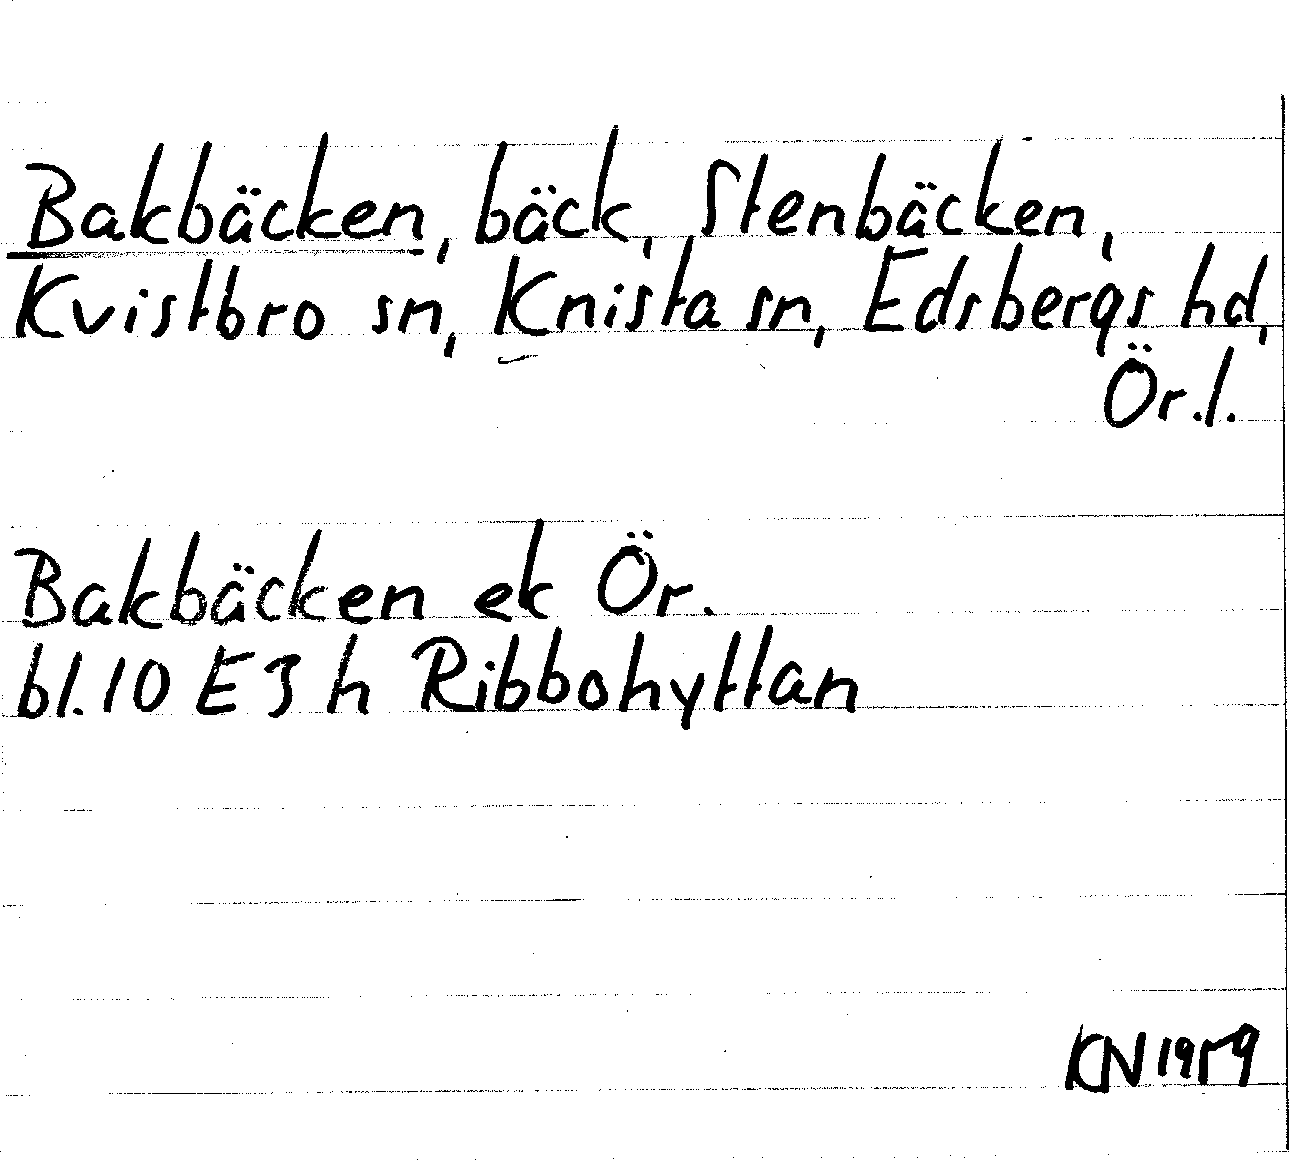 Bakbäcken, bäck, Stenbäcken,
Kvistbro sn, Knista sn, Edsbergs hd,
Ör.l.
Bakbäcken ek Ör.
bl. 10 E 3 h Ribbohyttan
KN 1959